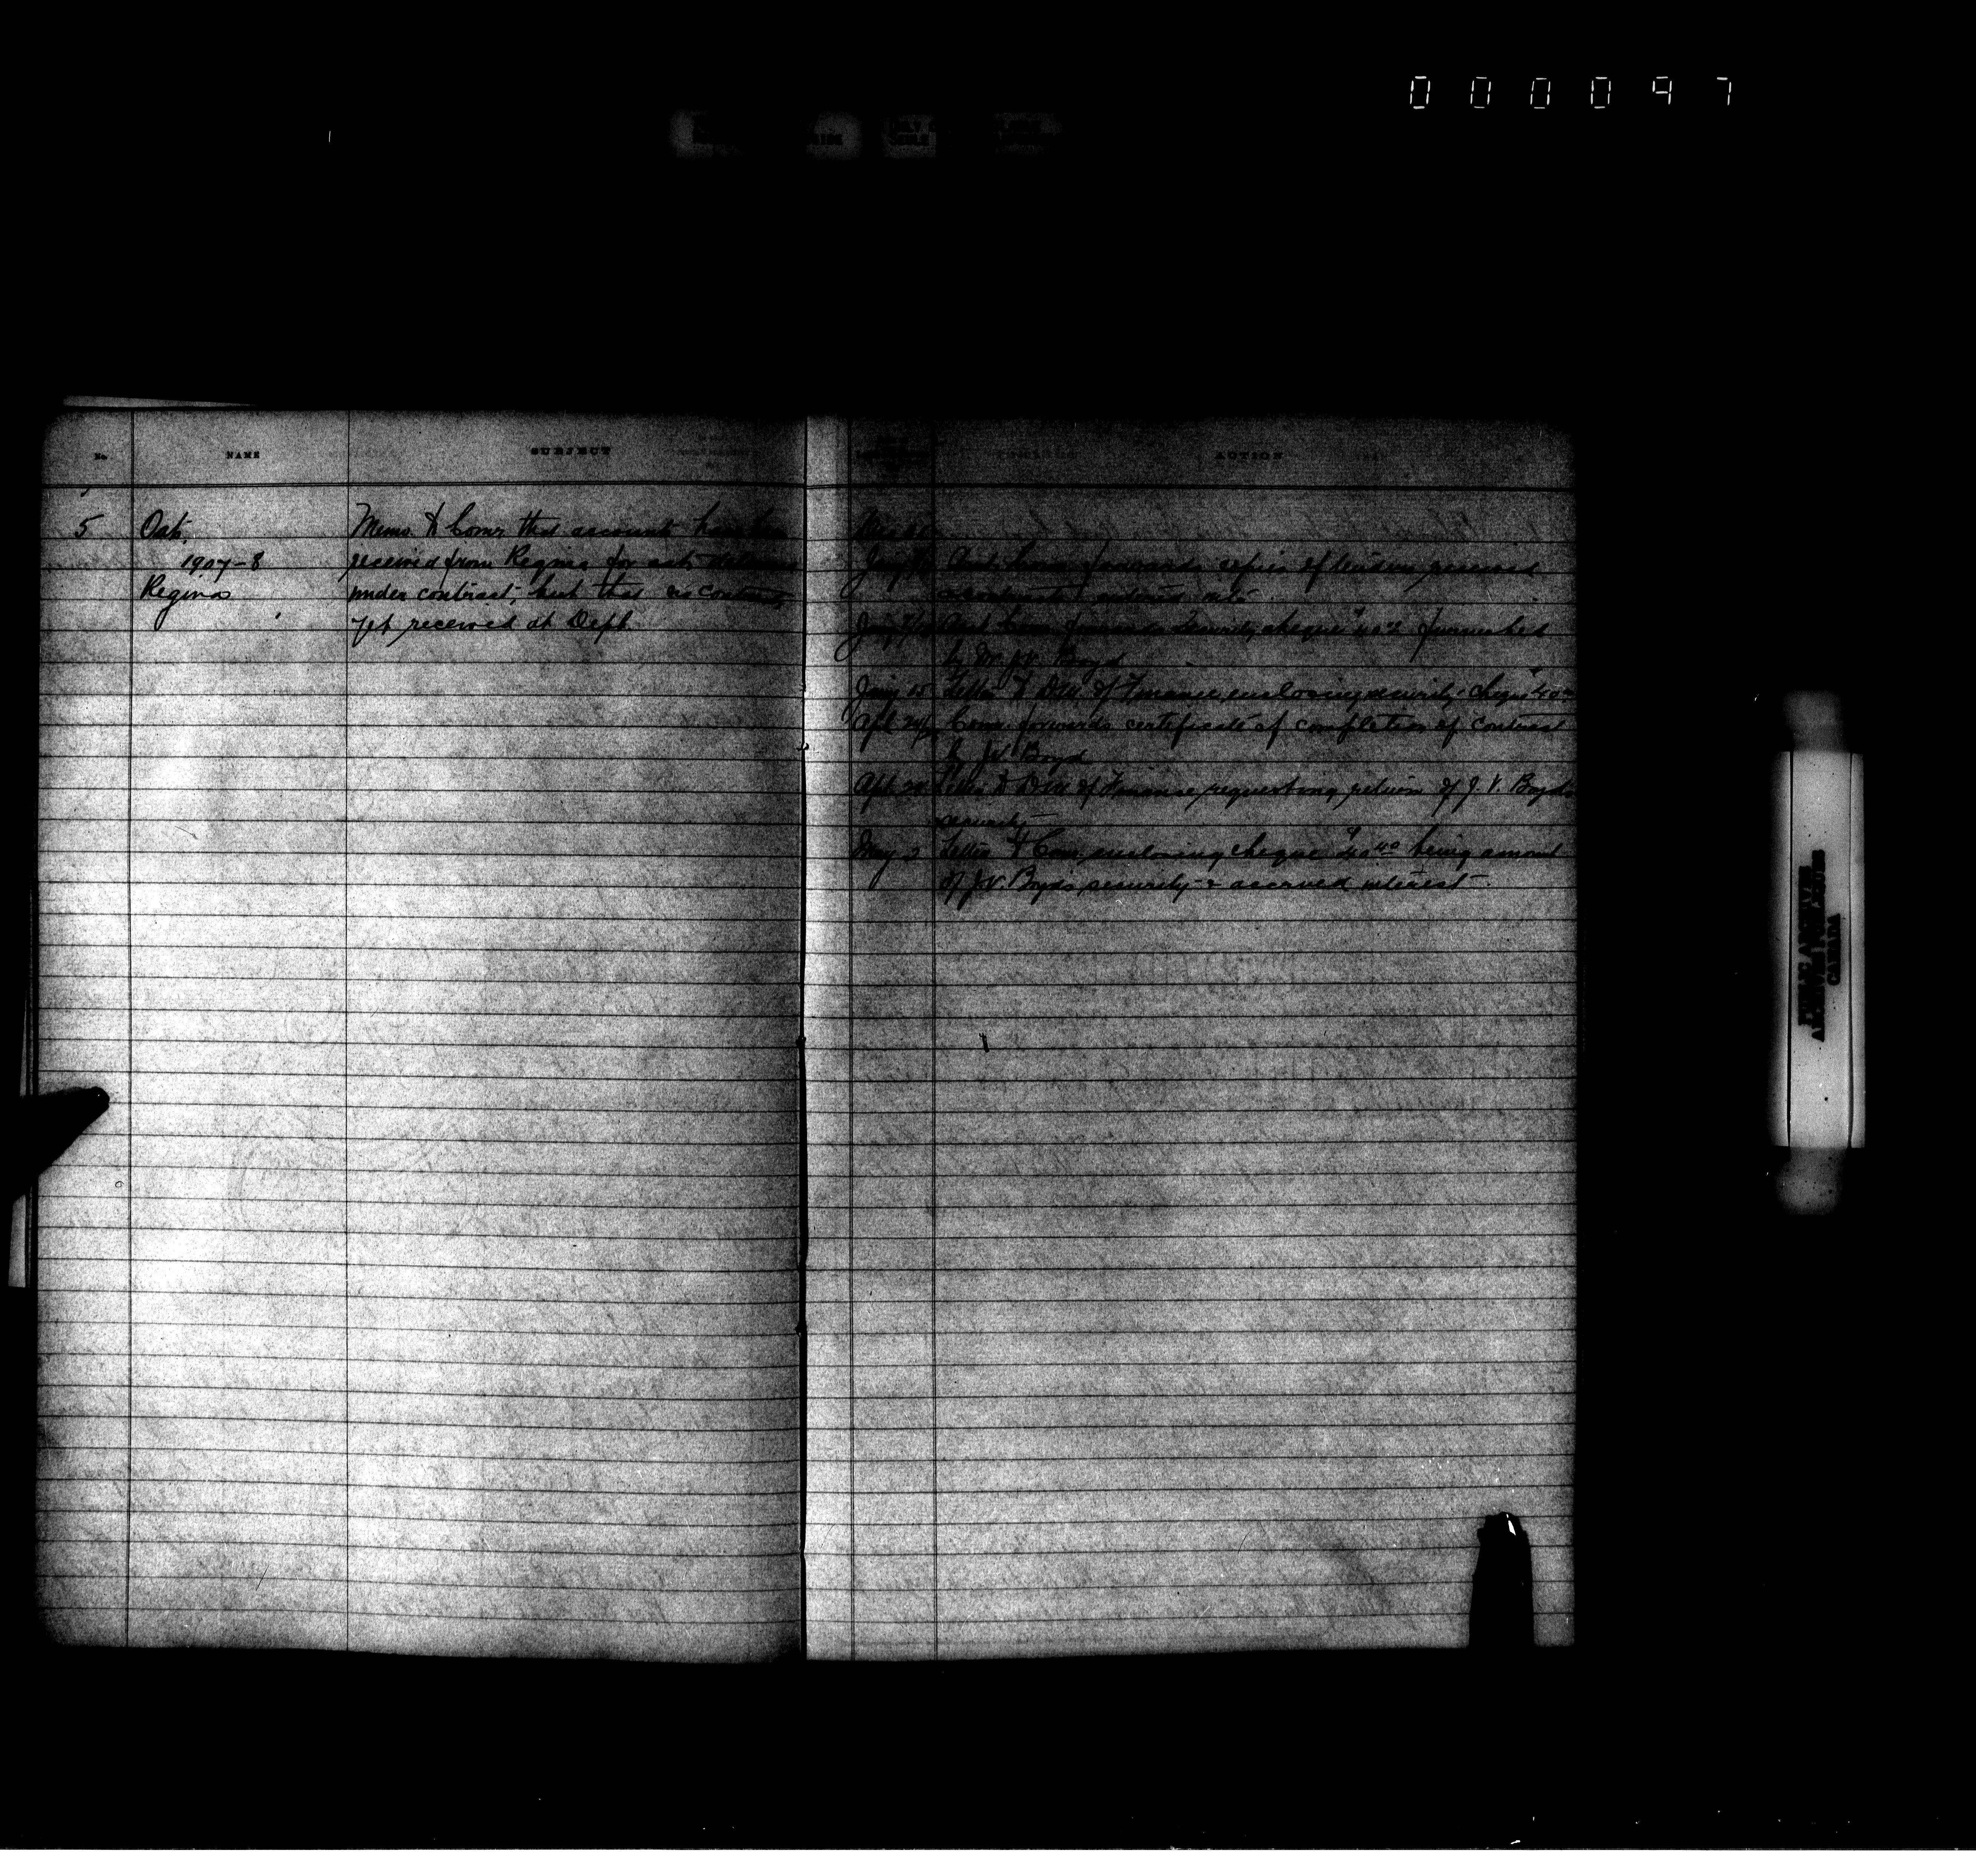 000097
No. NAME SUBJECT
5 Oats, Memo to Comr that accounts have been
1907-8 received from Regina for oats delivered
Regina under contract, but that no contract
yet received at Dept.
ACTION
Jany Asst. Comr forwards copies of tenders received
Jany Asst. Comr forwards Security cheque $40.00 furnished
by Mr. J.V. Boyd
Jany 15 Letter to D.M. of Finance, enclosing security cheque $40.00
Apl 24/ Comr. forwards certificate of completion of contract
by J.V. Boyd
Apl Letter to D.M. of Finance requesting return of J.V. Boyd's
security
May 2 Letter to Comr enclosing cheque $40.40 being amount
of J.V. Boyd's security & accrued interest.
PUBLIC ARCHIVES
ARCHIVES PUBLIQUES
CANADA